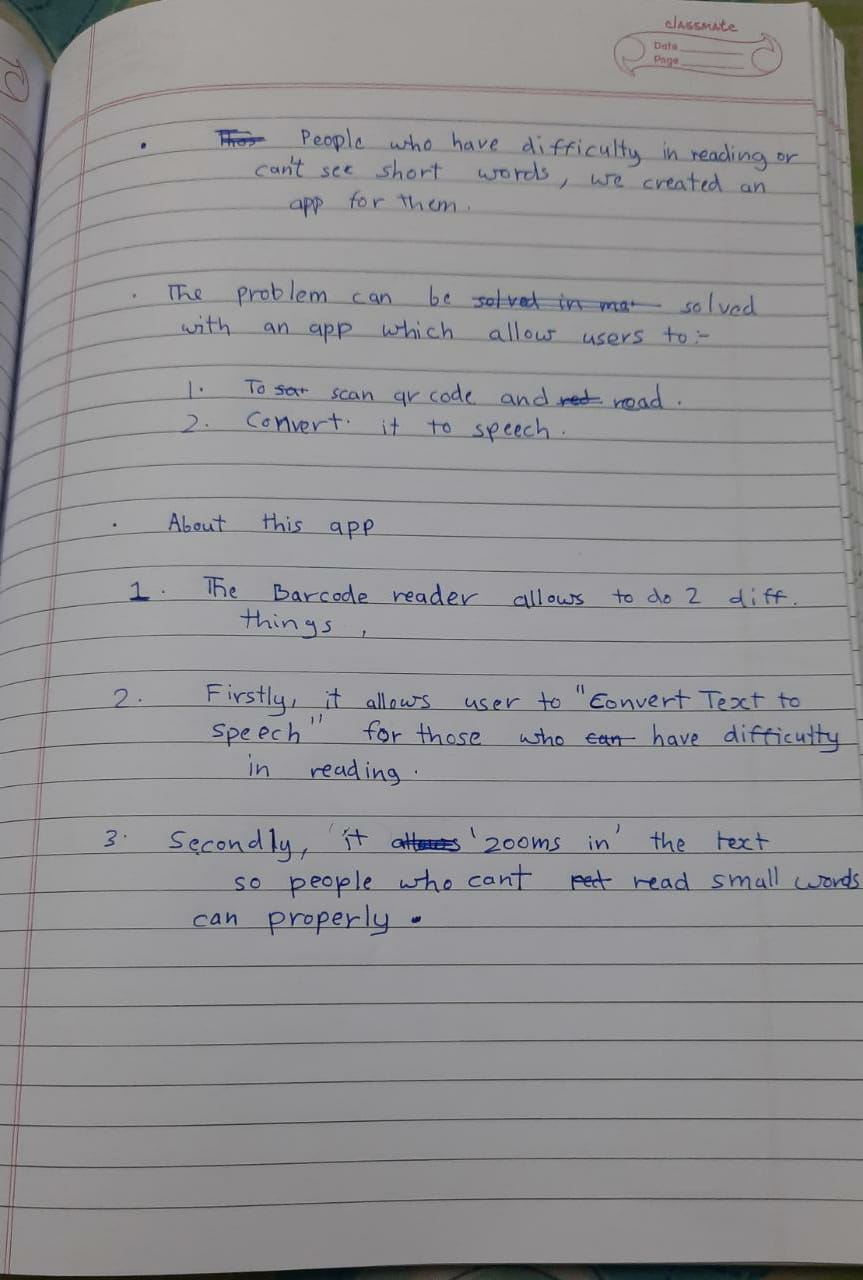 classmate
Date
Page
• People who have difficulty in reading or
can't see short words, we created an
app for them.
• The problem can be solved in mat solved
with an app which allow users to :-
1. To sat scan qr code and red read.
2. Convert it to speech.
• About this app
1. The Barcode reader allows to do 2 diff.
things,
2. Firstly, it allows user to "Convert Text to
Speech" for those who can have difficulty
in reading.
3. Secondly, it allows 'zooms in' the text
so people who cant read small words
can properly.